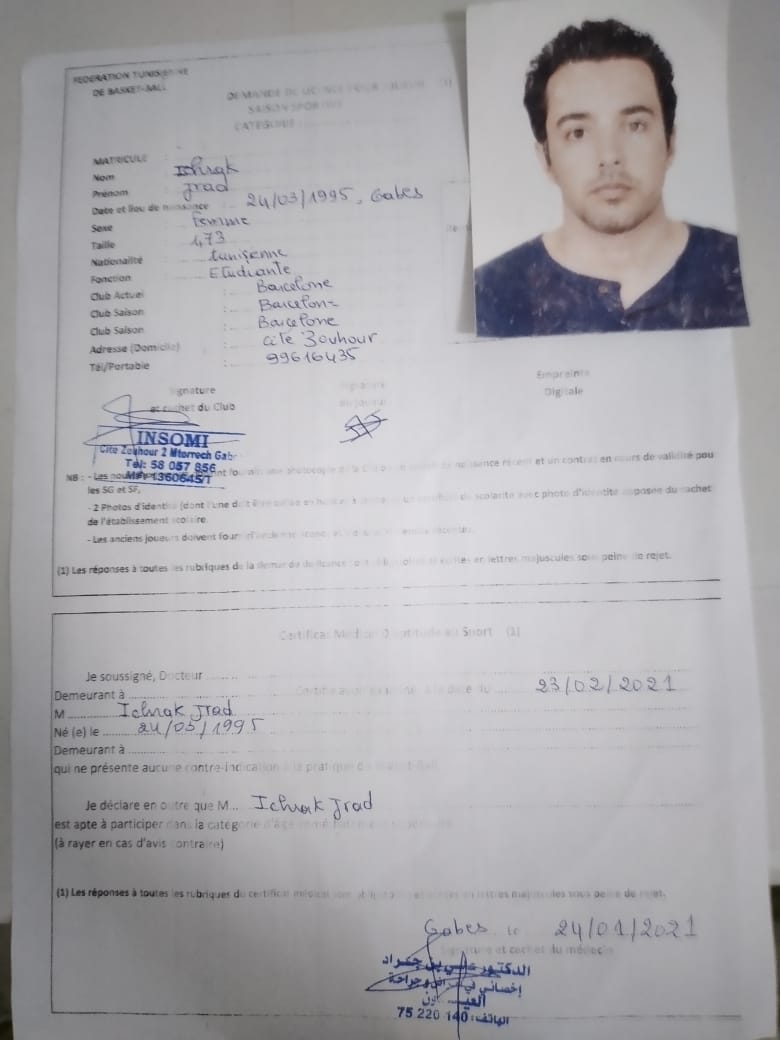 FEDERATION TUNISIENNE
DE BASKET-BALL
DEMANDE DE LICENCE POUR JOUEUR (1)
SAISON SPORTIVE
CATEGORIE
MATRICULE :
Nom : Ichrak
Prénom : Jrad
Date et lieu de naissance : 24/03/1995, Gabes
Sexe : Femme
Taille : 1,73
Nationalité : tunisienne
Fonction : Etudiante
Club Actuel : Barcelone
Club Saison : Barcelone
Club Saison : Barcelone
Adresse (Domicile) : cite Zouhour
Tél/Portable : 99616435
Signature
et cachet du Club
Signature
du joueur
Empreinte
Digitale
INSOMI
Cite Zouhour 2 Mtorrech Gab
Tél: 58 057 856
MF: 1360645/T
NB : - Les nouveaux photocopie de la naissance récent et un contrat en cours de validité pou
les SG et SF,
- 2 Photos d'identité (dont l'une doit être de scolarité avec photo d'identité apposée du cachet
de l'établissement scolaire.
- Les anciens joueurs doivent fournir
(1) Les réponses à toutes les rubriques de la demande de licence sont en lettres majuscules sous peine de rejet.
Certificat Médical D'aptitude au Sport (1)
Je soussigné, Docteur
Demeurant à Certifie avoir examiné à la date du 23/02/2021
M Ichrak Jrad
Né (e) le 24/05/1995
Demeurant à
qui ne présente aucune contre-indication à la pratique du Basket-Ball.
Je déclare en outre que M... Ichrak Jrad
est apte à participer dans la catégorie d'âge
(à rayer en cas d'avis contraire)
(1) Les réponses à toutes les rubriques du certificat médical sont en lettres majuscules sous peine de rejet.
Gabes le 24/01/2021
Signature et cachet du médecin
الدكتور
إخصائي في وجراحة
العيون
الهاتف: 75 220 140